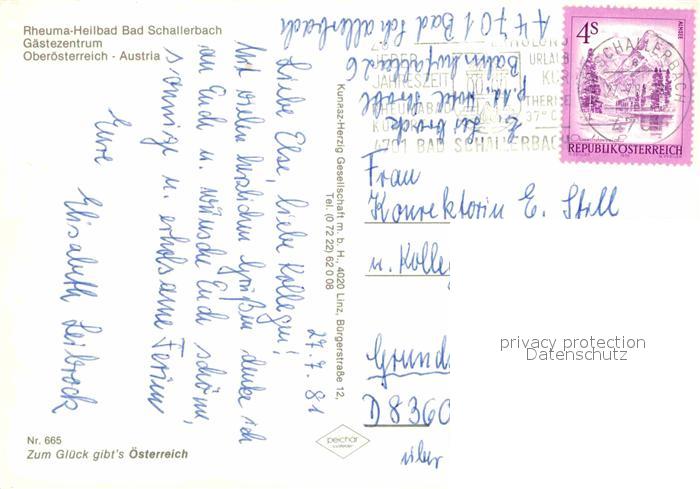 Rheuma-Heilbad Bad Schallerbach
Gästezentrum
Oberösterreich - Austria
27.7.81
Liebe Else, liebe Kollegen!
Mit vielen herzlichen Grüßen denke ich
an Euch u. wünsche Euch schöne,
sonnige u. erholsame Ferien
Eure Elisabeth Leibrock
Nr. 665
Zum Glück gibt's Österreich
Kunasz-Herzig Gesellschaft m. b. H., 4020 Linz, Bürgerstraße 12,
Tel. (0 72 22) 62 0 08
peichar
E. Leibrock
p.a. Hotel
Bahnhofstraße 6
A 4701 Bad Schallerbach
JAHRESZEIT
URLAUB
KUR
THERME
37° C
4701 BAD SCHALLERBACH
SCHALLERBACH
4S
ALMSEE
REPUBLIK ÖSTERREICH
Frau
Konrektorin E. Still
u. Kolleg
Grunds
D 8360
über
privacy protection
Datenschutz